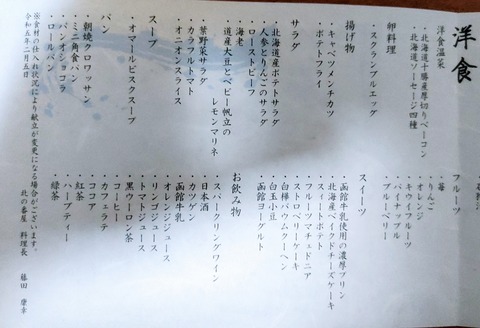 洋食
洋食温菜
・北海道十勝産厚切りベーコン
・北海道ソーセージ四種
卵料理
・スクランブルエッグ
揚げ物
・キャベツメンチカツ
・ポテトフライ
サラダ
・北海道産ポテトサラダ
・人参とりんごのサラダ
・ローストビーフ
・海老
・道産大豆とベビー帆立の
レモンマリネ
・紫野菜サラダ
・カラフルトマト
・オニオンスライス
スープ
・オマールビスクスープ
パン
・朝焼クロワッサン
・ミニ角食パン
・パンオショコラ
・ロールパン
フルーツ
・苺
・りんご
・オレンジ
・キウイフルーツ
・パイナップル
・ブルーベリー
スイーツ
・函館牛乳使用の濃厚プリン
・北海道産ベイクドチーズケーキ
・スイートポテト
・フルーツマチェドニア
・ストロベリーケーキ
・白樺バウムクーヘン
・白玉小豆
・函館ヨーグルト
お飲み物
・スパークリングワイン
・日本酒
・カツゲン
・函館牛乳
・オレンジジュース
・リンゴジュース
・トマトジュース
・黒ウーロン茶
・コーヒー
・カフェラテ
・ココア
・紅茶
・ハーブティー
・緑茶
※食材の仕入れ状況により献立が変更になる場合がございます。
令和五年二月五日
北の番屋 料理長 藤田 康幸